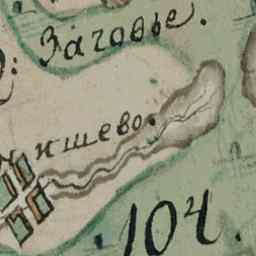 Загодье.
ишево.
104.